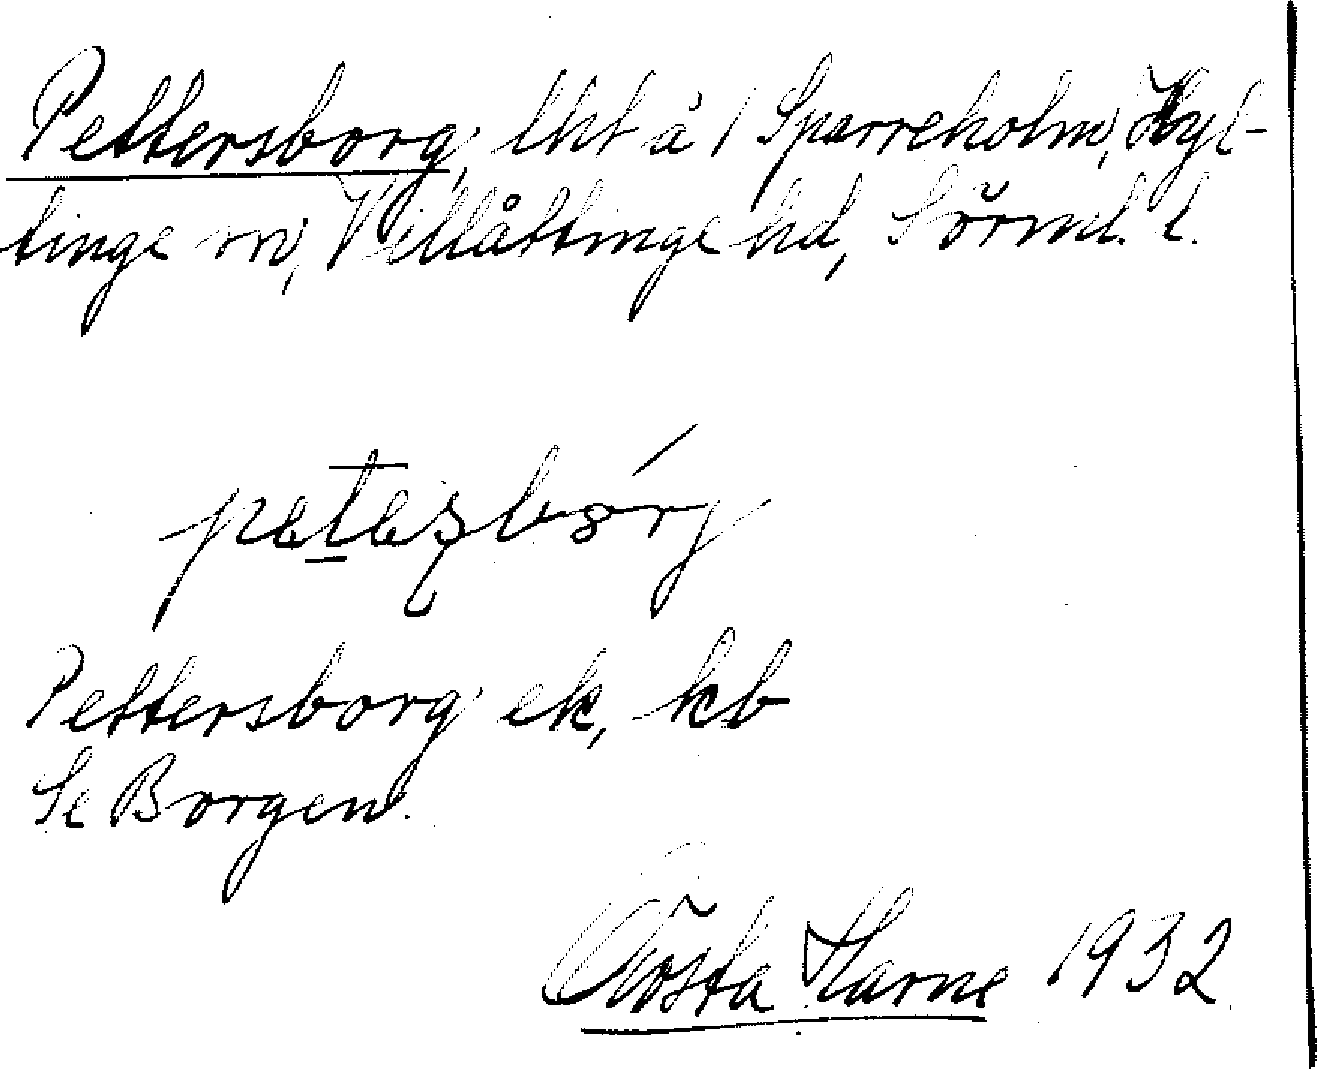 Pettersborg, lht å / Sparreholm, Hyl-
tinge sn, Villåttinge hd, Sörml. l.
petesborg
Pettersborg ek, kb
Se Borgen.
Gösta Harne 1932